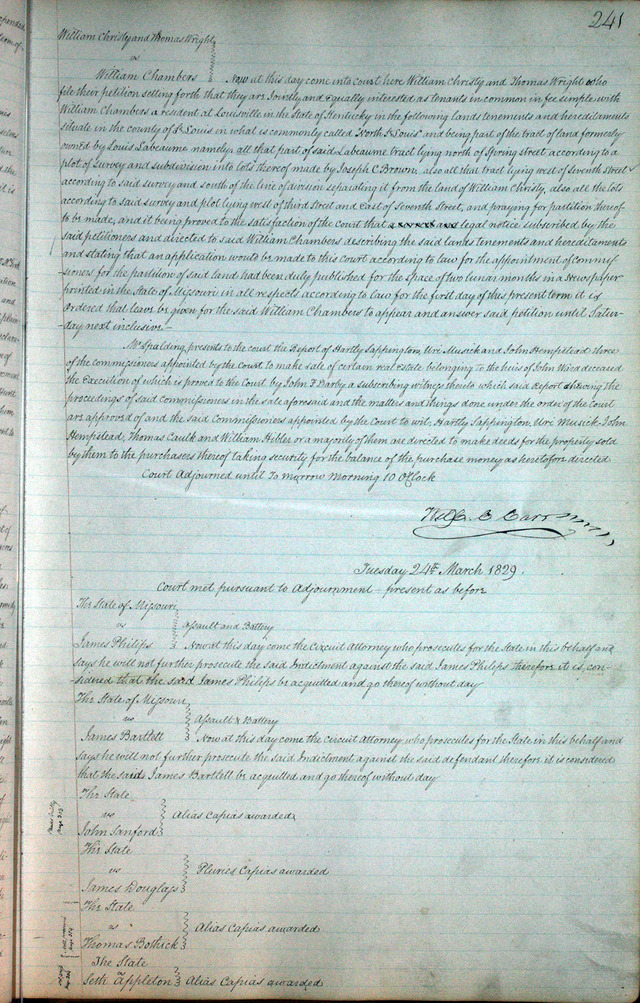 241
William Christy and Thomas Wright
vs
William Chambers } Now at this day come into court here William Christy and Thomas Wright who
file their petition setting forth that they are Jointly and equally interested as tenants in common in fee simple with
William Chambers a resident at Louisville in the State of Kentucky in the following lands tenements and hereditaments
situate in the county of St Louis in what is commonly called North St Louis and being part of the tract of land formerly
owned by Louis Labeaume namely, all that part of said Labeaume tract lying north of Spring street according to a
plot of Survey and subdivision into lots thereof made by Joseph C Brown, also all that tract lying west of Seventh Street
according to said survey and south of the line of division separating it from the land of William Christy, also all the lots
according to said survey and plot lying west of third Street and East of Seventh Street, and praying for partition thereof
to be made, and it being proved to the satisfaction of the Court that legal notice subscribed by the
said petitioners and directed to said William Chambers describing the said lands tenements and hereditaments
and stating that an application would be made to this court according to law for the appointment of commis
sioners for the partition of said land had been duly published for the space of two lunar months in a Newspaper
printed in the State of Missouri in all respects according to law for the first day of this present term it is
Ordered that leave be given for the said William Chambers to appear and answer said petition until Satur-
day next inclusive
Mr Spalding, presents to the court the Report of Hartly Sappington, Uri Musick and John Hempstead three
of the commissioners appointed by the Court to make sale of certain real Estate belonging to the heirs of John Ward deceased
the Execution of which is proved to the Court by John F Darby a subscribing witness thereto which said Report shewing the
proceedings of said commissioners in the sale aforesaid and the matters and things done under the order of the Court
are approved of and the said Commissioners appointed by the Court to wit, Hartly Sappington, Uri Musick John
Hempstead, Thomas Caulk and William Hibler or a majority of them are directed to make deeds for the property sold
by them to the purchasers thereof taking security for the balance of the purchase money as heretofore directed
Court Adjourned until To morrow Morning 10 OClock
C Carr
Tuesday 24th March 1829.
Court met pursuant to Adjournment present as before
The State of Missouri
vs } Assault and Battery
James Philips } Now at this day come the Circuit Attorney who prosecutes for the State in this behalf and
says he will not further prosecute the said Indictment against the said James Philips therefore it is con-
sidered that the said James Philips be acquitted and go thereof without day
The State of Missouri
vs } Assault & Battery
James Bartlett } Now at this day come the Circuit Attorney who prosecutes for the State in this behalf and
says he will not further prosecute the said Indictment against the said defendant therefore it is considered
that the said James Bartlett be acquitted and go thereof without day
The State
vs } Alias Capias awarded
John Sanford
The State
vs } Pluries Capias awarded
James Douglass
The State
vs } Alias Capias awarded
Thomas Bothick
The State
Seth Appleton } Alias Capias awarded